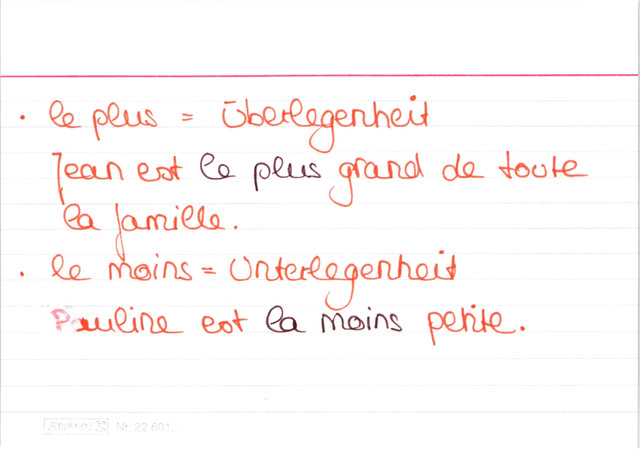 • le plus = Überlegenheit
Jean est le plus grand de toute
la famille.
• le moins = Unterlegenheit
Pauline est la moins petite.
Nr. 22 601